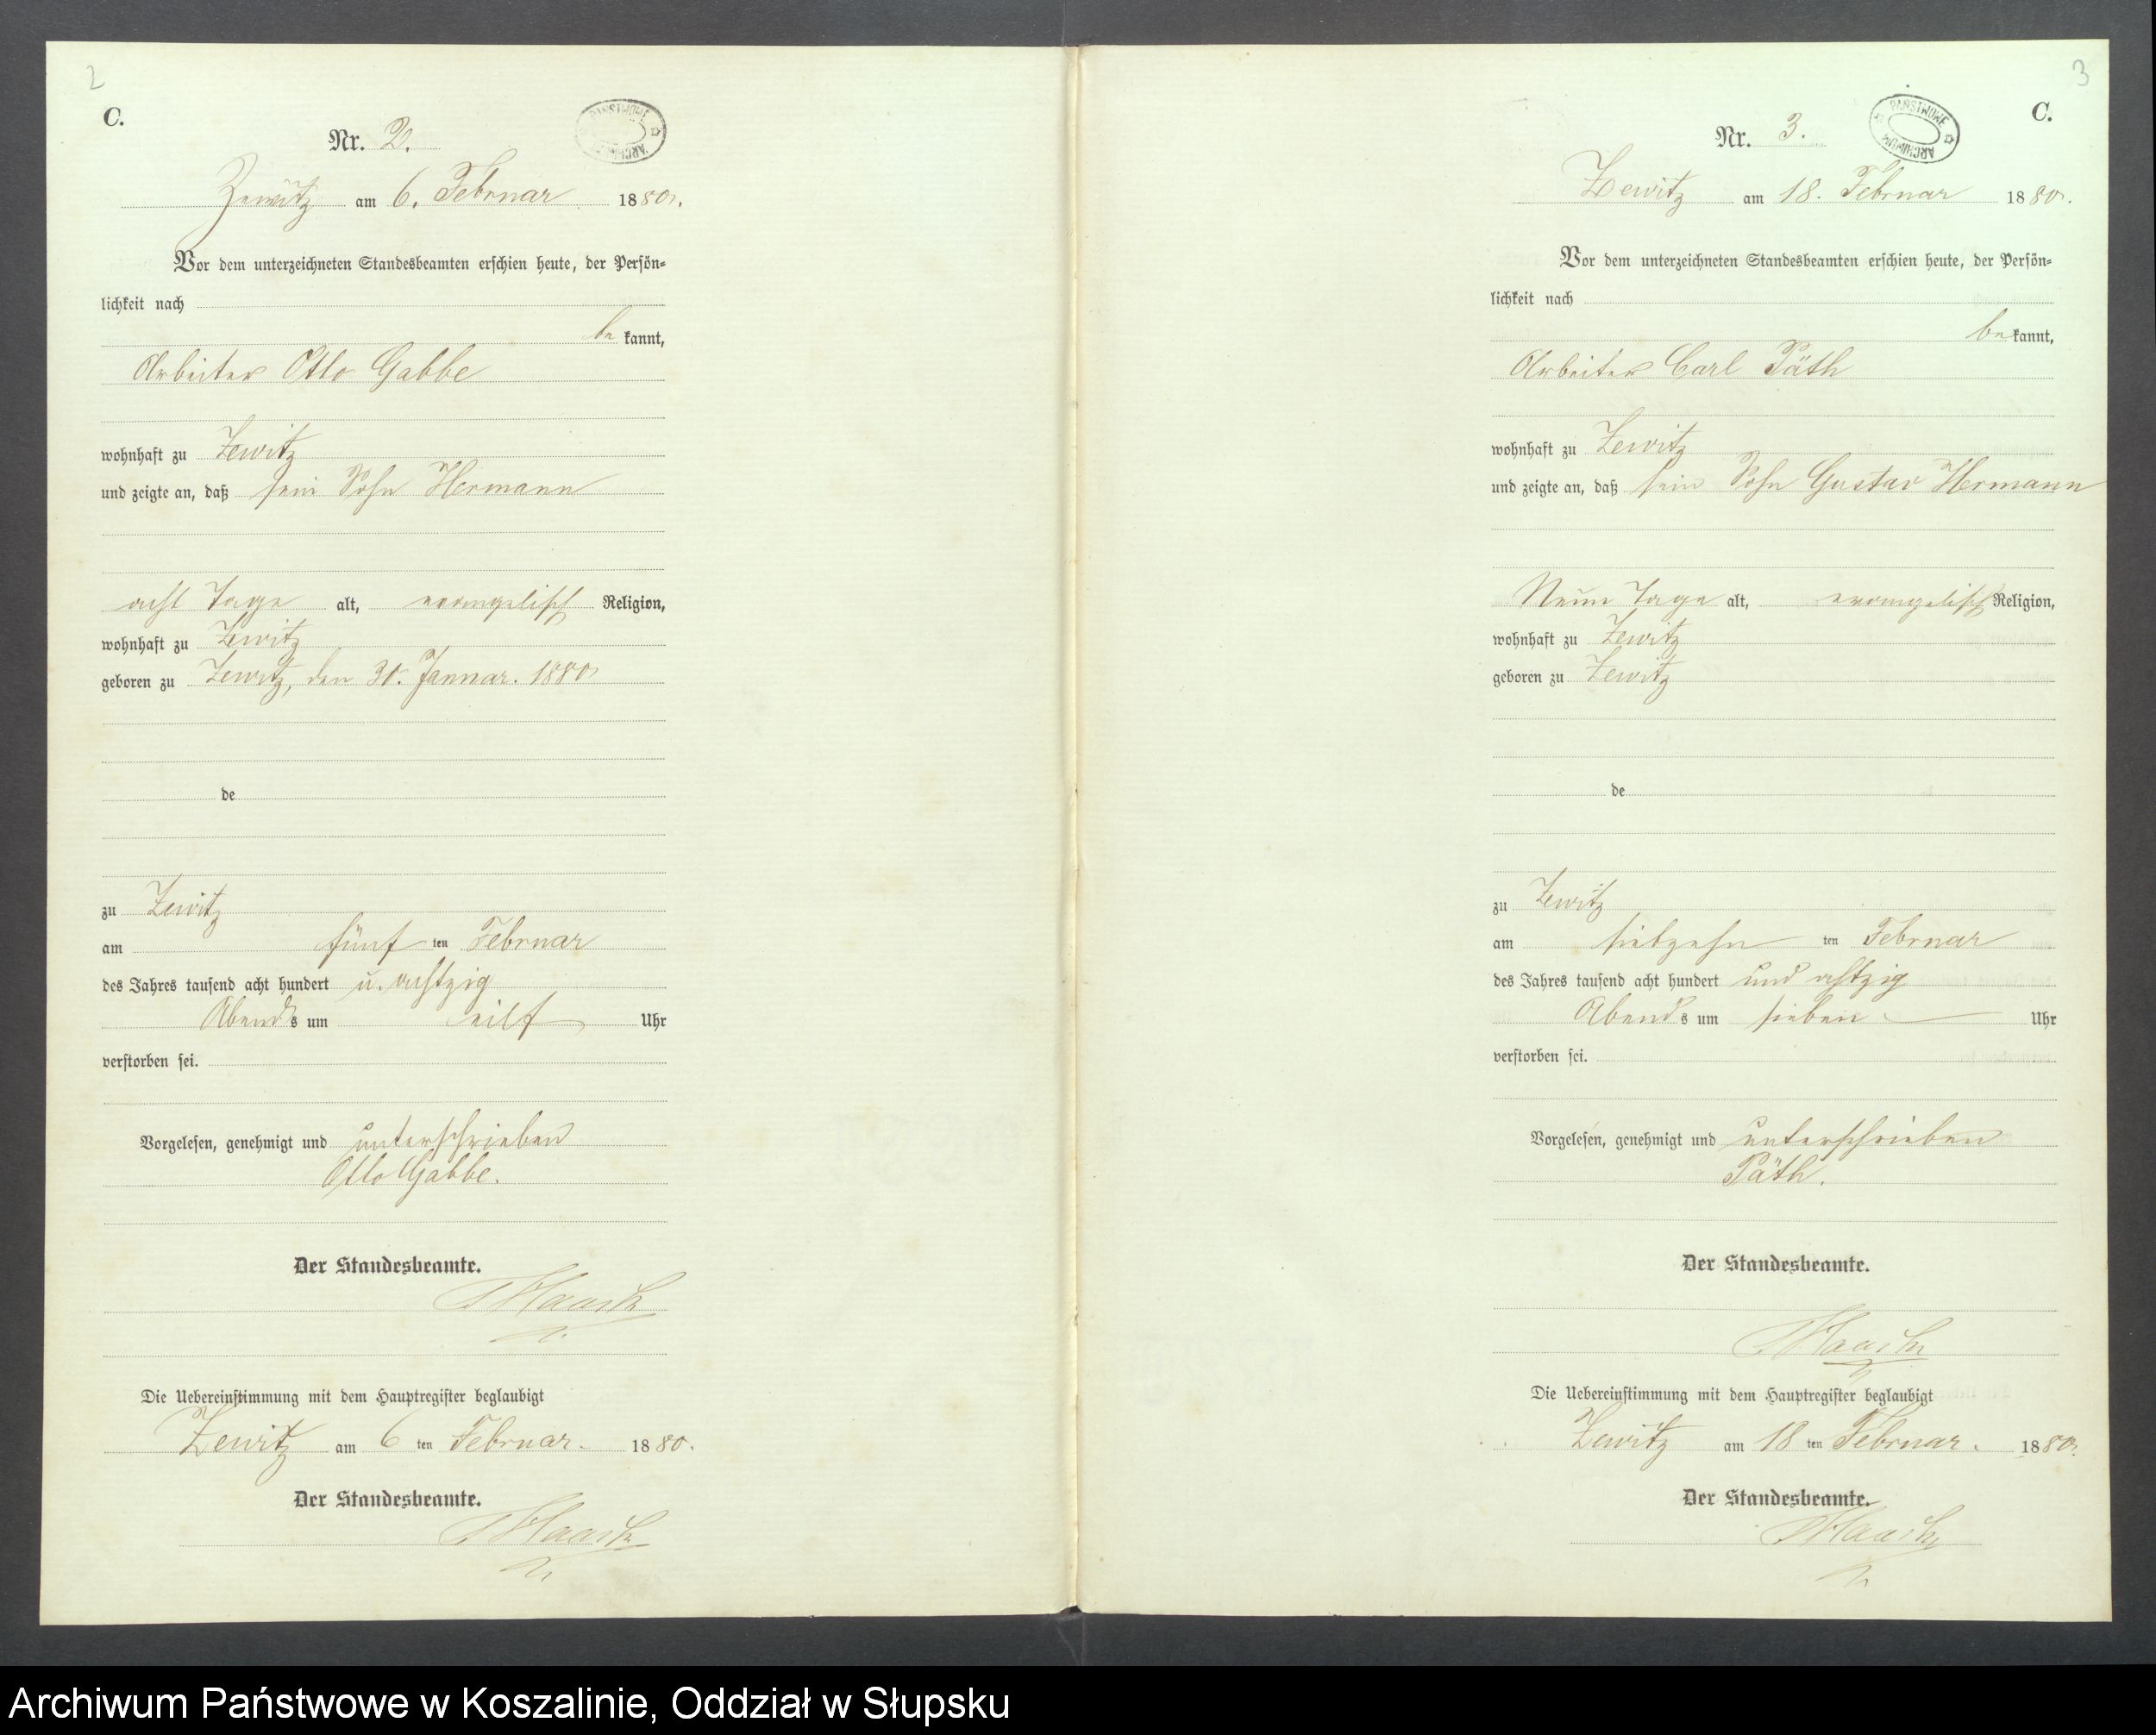 2
C.
Nr. 2.
PAŃSTWOWE ARCHIWUM
Zewitz am 6. Februar 1880.
Vor dem unterzeichneten Standesbeamten erschien heute, der Persön-
lichkeit nach
be kannt,
Arbeiter Otto Gabbe
wohnhaft zu Zewitz
und zeigte an, daß sein Sohn Hermann
acht Tage alt, evangelisch Religion,
wohnhaft zu Zewitz
geboren zu Zewitz, den 30. Januar. 1880
de
zu Zewitz
am fünf ten Februar
des Jahres tausend acht hundert u. achtzig
Abends um eilf Uhr
verstorben sei.
Vorgelesen, genehmigt und unterschrieben
Otto Gabbe.
Der Standesbeamte.
Die Uebereinstimmung mit dem Hauptregister beglaubigt
Zewitz am 6 ten Februar. 1880.
Der Standesbeamte.
3
C.
Nr. 3.
PAŃSTWOWE ARCHIWUM
Zewitz am 18. Februar 1880.
Vor dem unterzeichneten Standesbeamten erschien heute, der Persön-
lichkeit nach
bekannt,
Arbeiter Carl Päth
wohnhaft zu Zewitz
und zeigte an, daß sein Sohn Gustav Hermann
Neun Tage alt, evangelisch Religion,
wohnhaft zu Zewitz
geboren zu Zewitz
de
zu Zewitz
am siebzehn ten Februar
des Jahres tausend acht hundert und achtzig
Abends um sieben Uhr
verstorben sei.
Vorgelesen, genehmigt und unterschrieben
Päth.
Der Standesbeamte.
Die Uebereinstimmung mit dem Hauptregister beglaubigt
Zewitz am 18 ten Februar. 1880.
Der Standesbeamte.
Archiwum Państwowe w Koszalinie, Oddział w Słupsku